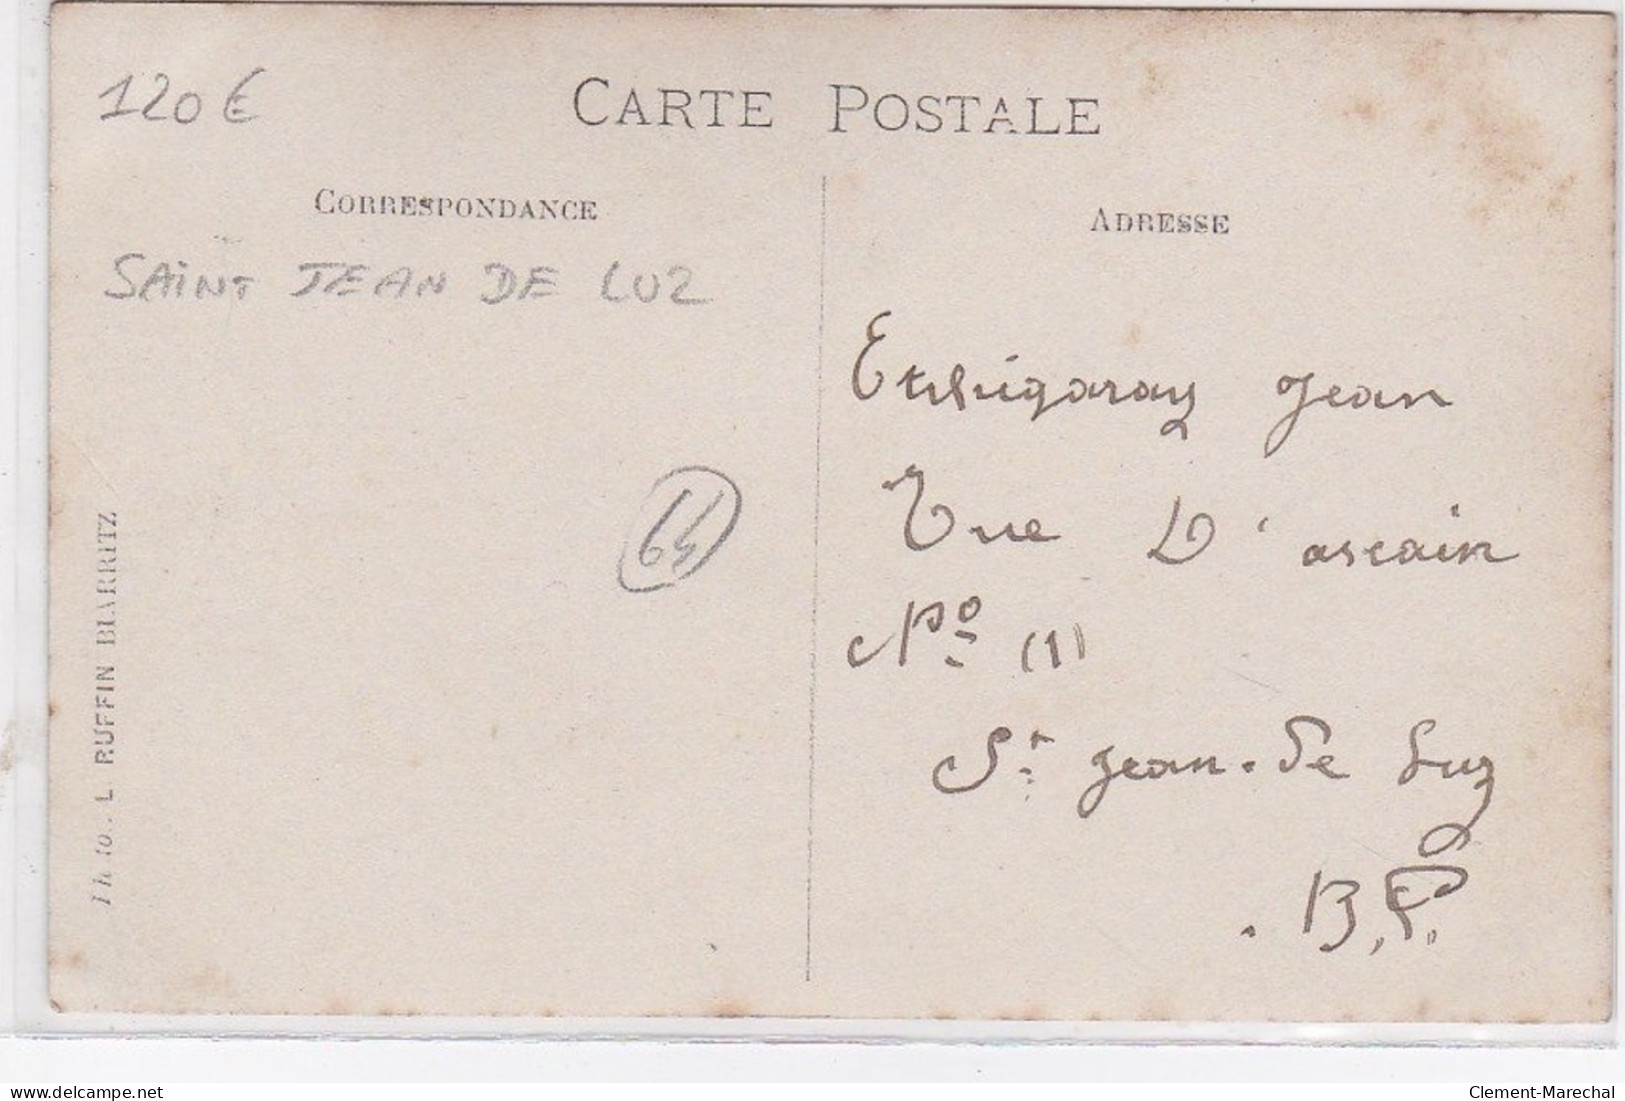 120 €
CARTE POSTALE
CORRESPONDANCE
SAINT JEAN DE LUZ
64
Photo. L RUFFIN BIARRITZ
ADRESSE
Etchigaray Jean
Rue D'ascain
No (1)
St Jean-De Luz
. B.P.
www.delcampe.net
Clement-Marechal